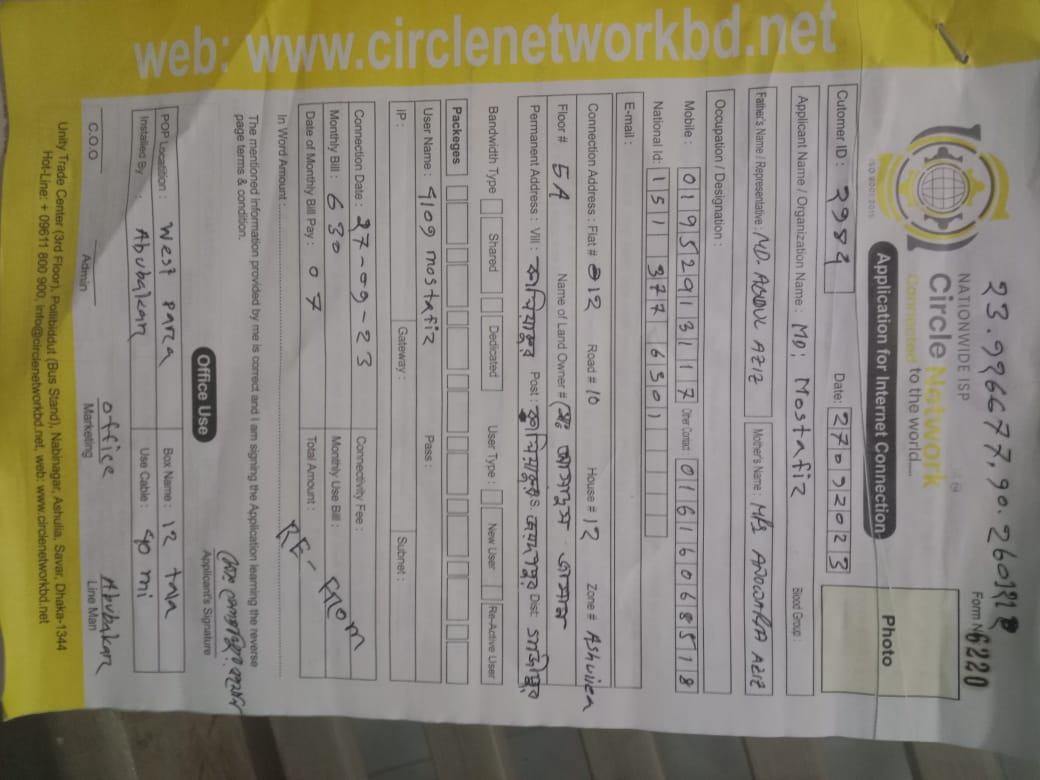 23.996677,90.260312
Form No 6220
NATIONWIDE ISP
Circle Network
Connected to the world....
ISO 9001:2015
Application for Internet Connection
Photo
Cutomer ID : 3984
Date: 27092023
Applicant Name / Organization Name : MD: Mostafiz
Blood Group :
Father's Name / Representative : MD. ABDUL AZIZ
Mother's Name : MRS ANOWARA AZIZ
Occupation / Designation :
Mobile : 01952913117
Other Contact : 01616068518
National Id: 1513776301
E-mail :
Connection Address : Flat # 12 Road # 10 House # 12 Zone # Ashuliea
Floor # 5A Name of Land Owner #
Permanent Address : Vill : Post : P.S. Dist:
Bandwidth Type Shared Dedicated User Type : New User Re-Active User
Packeges
User Name : 4109 mostafiz Pass :
IP : Gateway : Subnet :
Connection Date : 27-09-23 Connectivity Fee :
Monthly Bill : 630 Monthly Use Bill :
Date of Monthly Bill Pay : 07 Total Amount :
In Word Amount :
The mentioned information provided by me is correct and I am signing the Application learning the reverse
page terms & condition.
Applicant's Signature
Office Use
POP Location : West para Box Name : 12 tala
Installed By : Abubakar Use Cable : 40 mi
office Abubakar
C.O.O Admin Marketing Line Man
Unity Trade Center (3rd Floor), Pollibiddut (Bus Stand), Nabinagar, Ashulia, Savar, Dhaka-1344
Hot-Line: + 09611 800 900, info@circlenetworkbd.net, web: www.circlenetworkbd.net
web: www.circlenetworkbd.net